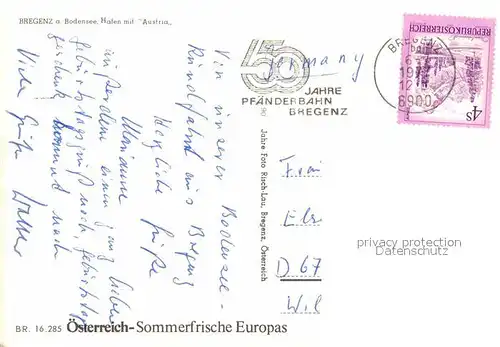 BREGENZ a. Bodensee, Hafen mit "Austria"
Von unserer Bodensee-
Rundfahrt aus Bregenz
Herzliche Grüße
Marianne
außerdem einen ganz lieben
Geburtstagsgruß noch, Geburtstags-
geschenk kommt nach
Viele Grüße Walter
50
JAHRE
PFÄNDERBAHN
BREGENZ
BREGENZ
6900
REPUBLIK ÖSTERREICH
4S
Germany
Frau
D 67
privacy protection
Datenschutz
Jahre Foto Risch-Lau, Bregenz, Österreich
BR. 16.285 Österreich-Sommerfrische Europas